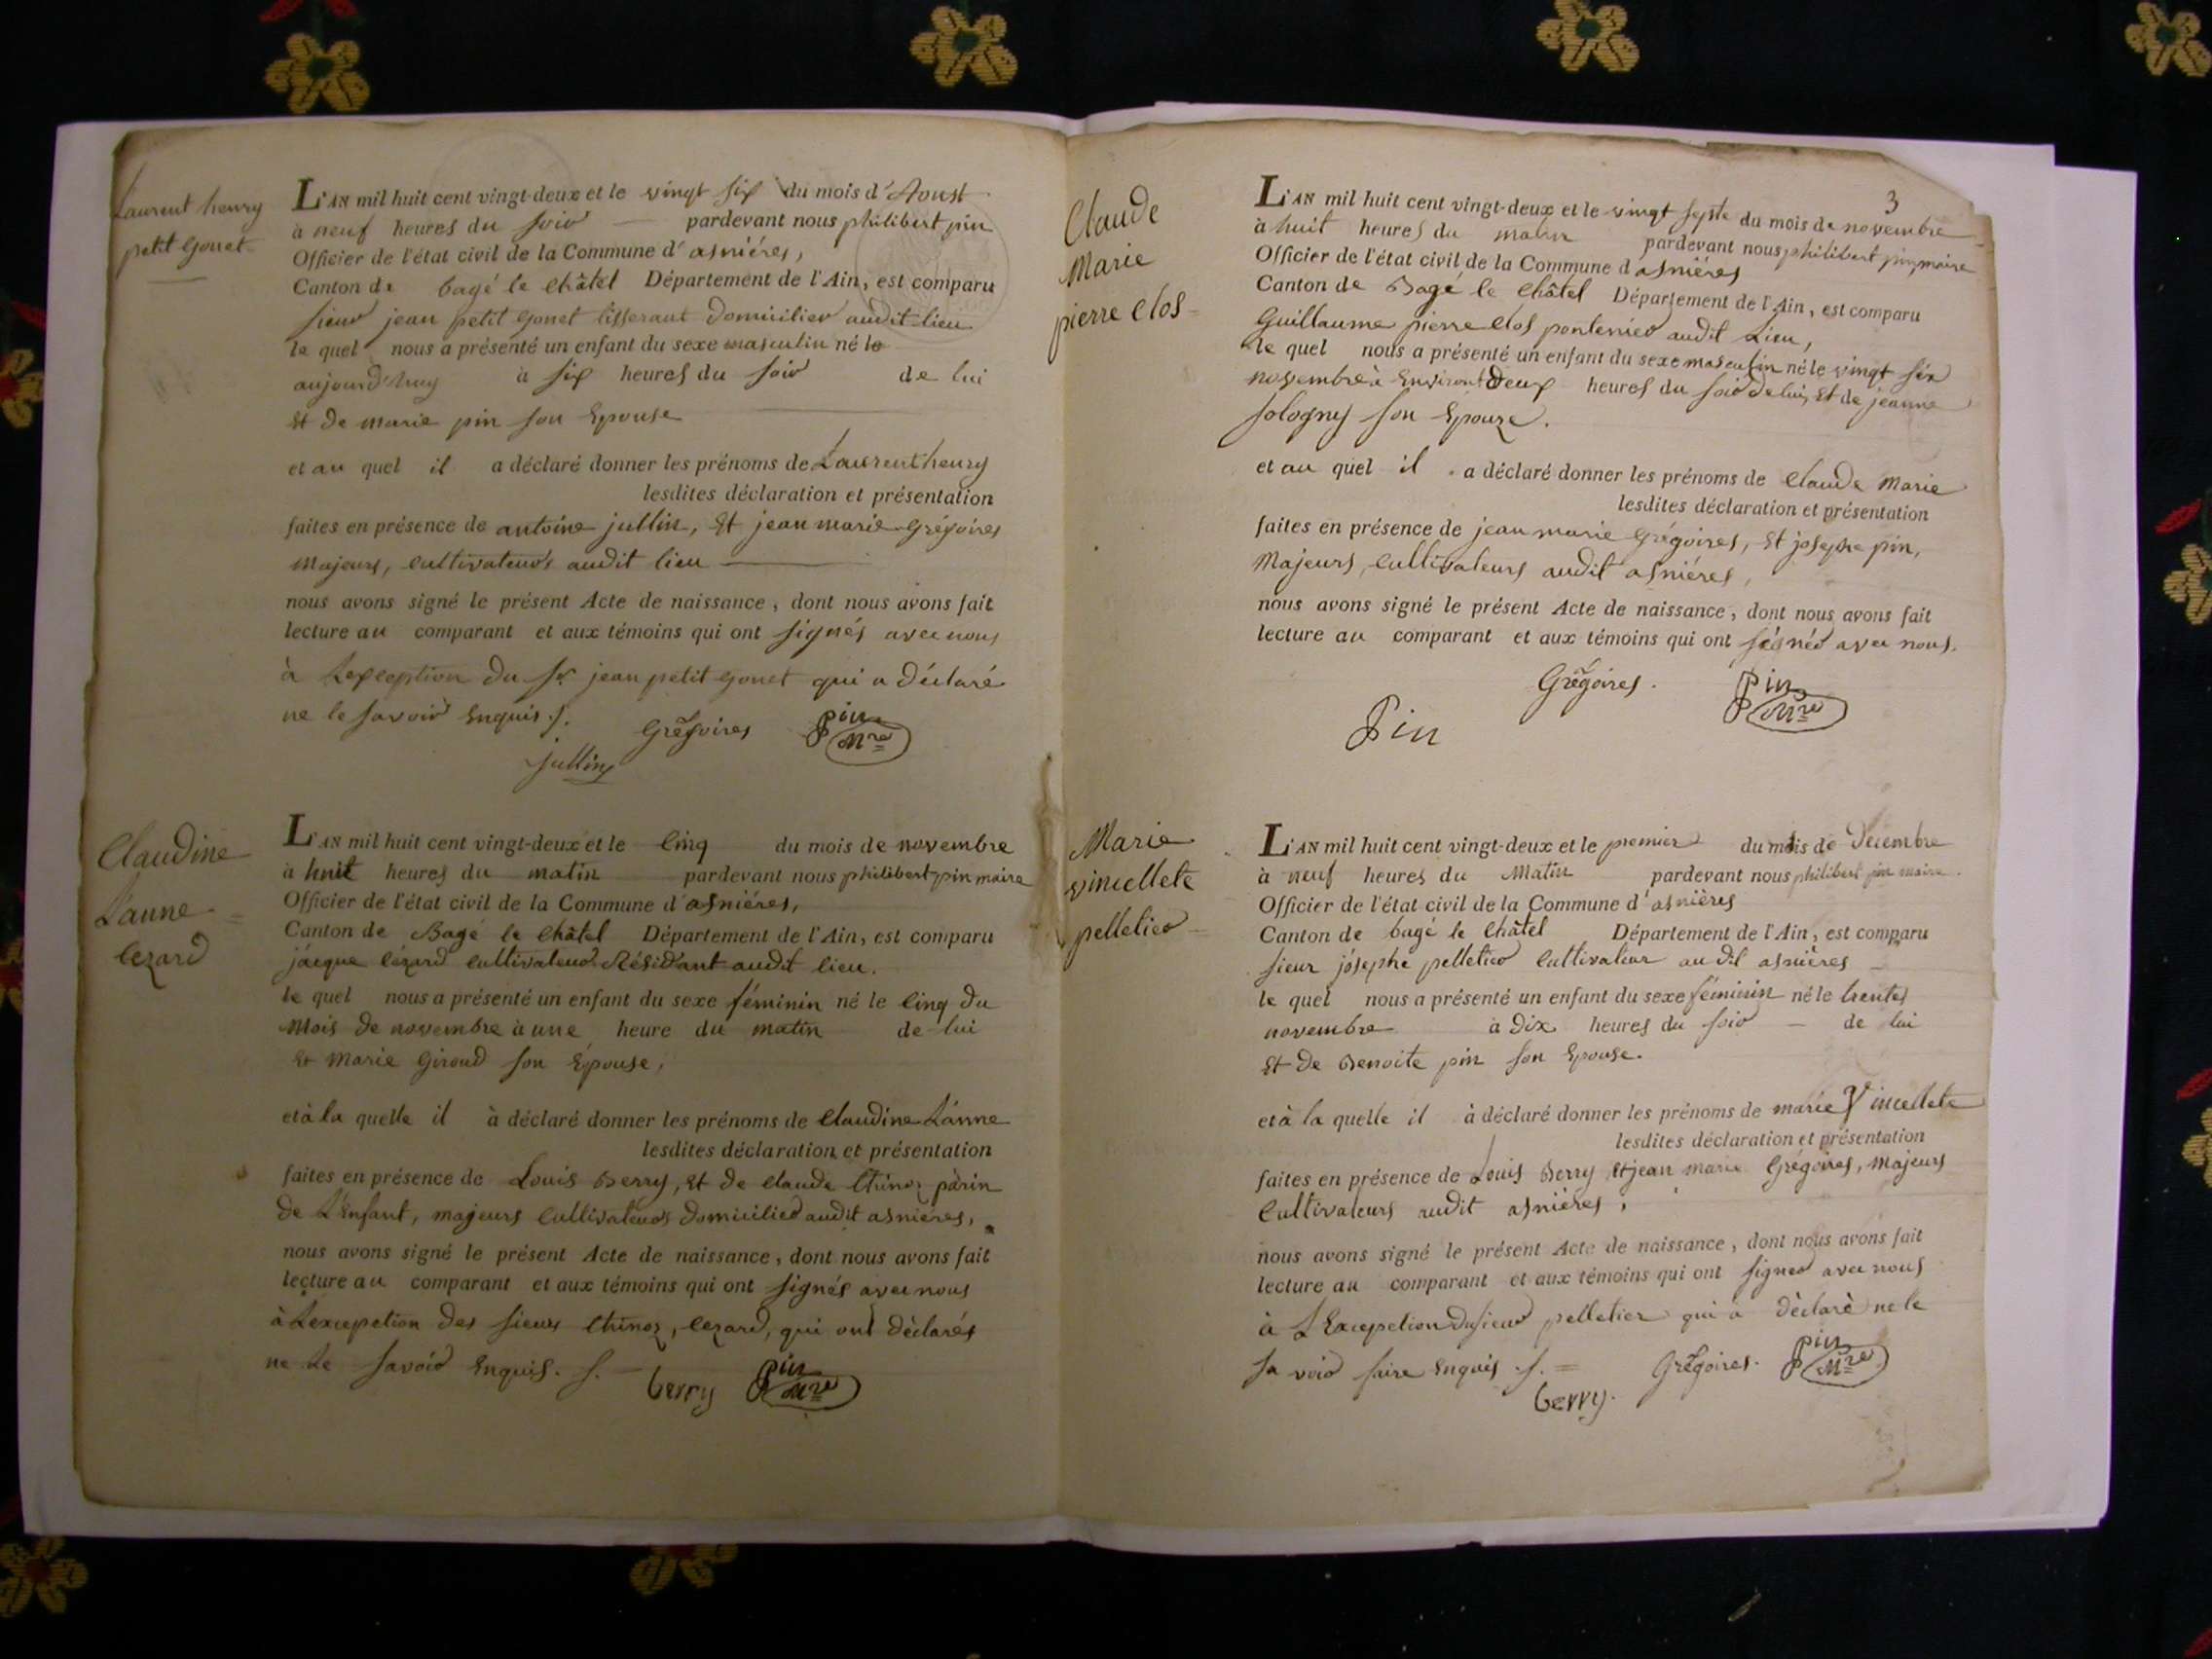 Laurent henry
petit Gonet
L'AN mil huit cent vingt-deux et le vingt six du mois d'Aoust
à neuf heures du soir pardevant nous philibert pin
Officier de l'état civil de la Commune d'asniéres,
Canton de bagé le Châtel Département de l'Ain, est comparu
sieur jean petit gonet tisserant domicilier audit lieu
le quel nous a présenté un enfant du sexe masculin né le
aujourd'huy à six heures du soir de lui
et de marie pin son Epouse
et au quel il a déclaré donner les prénoms de Laurent henry
lesdites déclaration et présentation
faites en présence de antoine jullin, et jean marie Grégoires
Majeurs, cultivateurs audit lieu
nous avons signé le présent Acte de naissance, dont nous avons fait
lecture au comparant et aux témoins qui ont signés avec nous
à Lexception du Sr jean petit gonet qui a déclaré
ne le savoir Enquis .f.
Grégoires
pin
Mre
jullin
Claudine
L'anne
cezard
L'AN mil huit cent vingt-deux et le Cinq du mois de novembre
à huit heures du matin pardevant nous philibert pin maire
Officier de l'état civil de la Commune d'asniéres,
Canton de Bagé le Châtel Département de l'Ain, est comparu
jácque cézard cultivateur Résidant audit lieu.
le quel nous a présenté un enfant du sexe féminin né le cinq du
Mois de novembre à une heure du matin de lui
et Marie Giroud son Épouse,
et à la quelle il à déclaré donner les prénoms de Claudine L'ánne
lesdites déclaration et présentation
faites en présence de Louis Berry, et de claude párin
de L'Enfant, majeurs Cultivateurs domicilied audit asniéres,
nous avons signé le présent Acte de naissance, dont nous avons fait
lecture au comparant et aux témoins qui ont signés avec nous
à Lexcepetion des sieurs cezard, qui ont dèclarés
ne Le savoir Enquis. f.
berry
pin
Mre
3
Claude
Marie
pierre Clos
L'AN mil huit cent vingt-deux et le vingt septe du mois de novembre
à huit heures du matin pardevant nous philibert pin maire
Officier de l'état civil de la Commune d asniéres
Canton de Bagé le Châtel Département de l'Ain, est comparu
Guillaume pierre Clos pontenier audit Lieu,
le quel nous a présenté un enfant du sexe masculin né le vingt six
novembre à Environt deux heures du soir de lui, et de jeanne
Sologny son Epouze.
et au quel il a déclaré donner les prénoms de Claude Marie
lesdites déclaration et présentation
faites en présence de jean marie Grégoires, et josephe pin,
Majeurs, Cultivateurs audit asniéres,
nous avons signé le présent Acte de naissance, dont nous avons fait
lecture au comparant et aux témoins qui ont signés avec nous.
Grégoires.
pin
Mre
Pin
Marie
vincellete
pelletier
L'AN mil huit cent vingt-deux et le premier du mois de Décembre
à neuf heures du Matin pardevant nous philibert pin maire.
Officier de l'état civil de la Commune d'asnières
Canton de bagé le Châtel Département de l'Ain, est comparu
sieur jósephe pelletier Cultivateur au dit asnières
le quel nous a présenté un enfant du sexe féminin né le trente
novembre à Dix heures du soir de lui
et de Benoite pin son Epouse.
et à la quelle il à déclaré donner les prénoms de marie Vincellete
lesdites déclaration et présentation
faites en présence de Louis Berry et jean marie Grégoires, Majeurs
Cultivateurs audit asnières,
nous avons signé le présent Acte de naissance, dont nous avons fait
lecture au comparant et aux témoins qui ont signés avec nous
à L'Excepetion du sieur pelletier qui à dèclarè ne le
sa voir faire Enquis .f. =
Grégoires.
pin
Mre
berry.